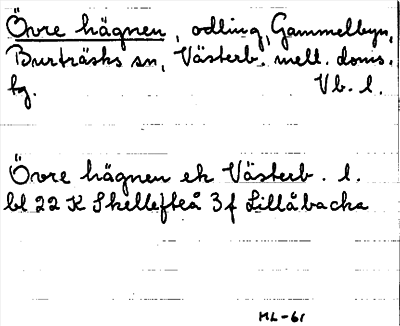 Övre hägnen, odling, Gammelbyn,
Burträsks sn, Västerb. mell. doms.
hg. Vb. l.
Övre hägnen ek Västerb. l.
bl 22 K Skellefteå 3f Lillåbacka
HL-61